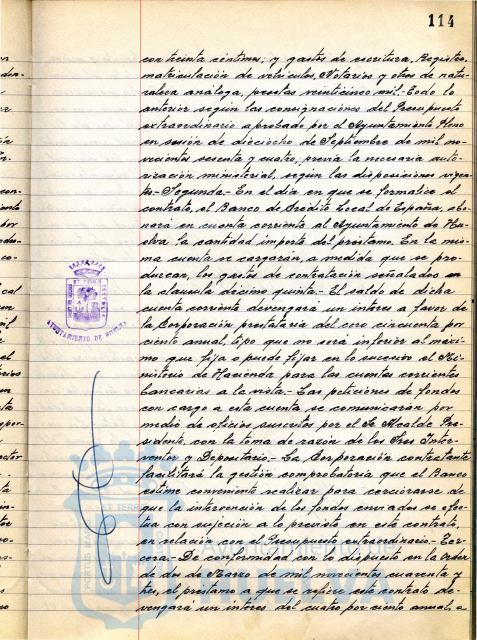 114
con treinta céntimos; y gastos de escritura, Registro,
matriculación de vehículos, Notarios y otros de natu-
raleza análoga, pesetas veinticinco mil.- Todo lo
anterior según las consignaciones del Presupuesto
extraordinario aprobado por el Ayuntamiento Pleno
en sesión de dieciocho de Septiembre de mil no-
vecientos sesenta y cuatro, previa la necesaria auto-
rización ministerial, según las disposiciones vigen-
tes.- Segunda.- En el día en que se formalice el
contrato, el Banco de Crédito Local de España, abo-
nará en cuenta corriente al Ayuntamiento de Hu-
elva la cantidad importe del préstamo. En la mis-
ma cuenta se cargarán, a medida que se pro-
duzcan, los gastos de contratación señalados en
la clausula décimo quinta.- El saldo de dicha
cuenta corriente devengará un interes a favor de
la Corporación prestataria del cero cincuenta por
ciento anual, tipo que no será inferior al máxi-
mo que fija o puede fijar en lo sucesivo el Mi-
nisterio de Hacienda para las cuentas corrientes
bancarias a la vista.- Las peticiones de fondos
con cargo a esta cuenta se comunicarán por
medio de oficios suscritos por el Sr. Alcalde Pre-
sidente, con la toma de razón de los Sres Inter-
ventor y Depositario.- La Corporación contratante
facilitará la gestión comprobatoria que el Banco
estime conveniente realizar para cerciorarse de
que la intervención de los fondos enviados se efec-
tua con sujeción a lo previsto en este contrato,
en relación con el Presupuesto extraordinario.- Ter-
cera.- De conformidad con lo dispuesto en la Orden
de dos de Marzo de mil novecientos cuarenta y
tres, el préstamo a que se refiere este contrato de-
vengará un interes del cuatro por ciento anual, a
AYUNTAMIENTO DE HUELVA